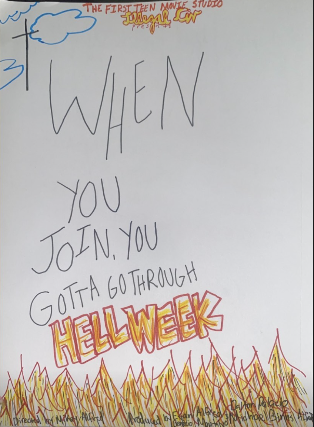 THE FIRST TEEN MOVIE STUDIO
WHEN
YOU
JOIN, YOU
GOTTA GO THROUGH
HELLWEEK
Directed by
Produced by